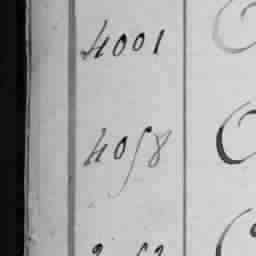 4001
4058